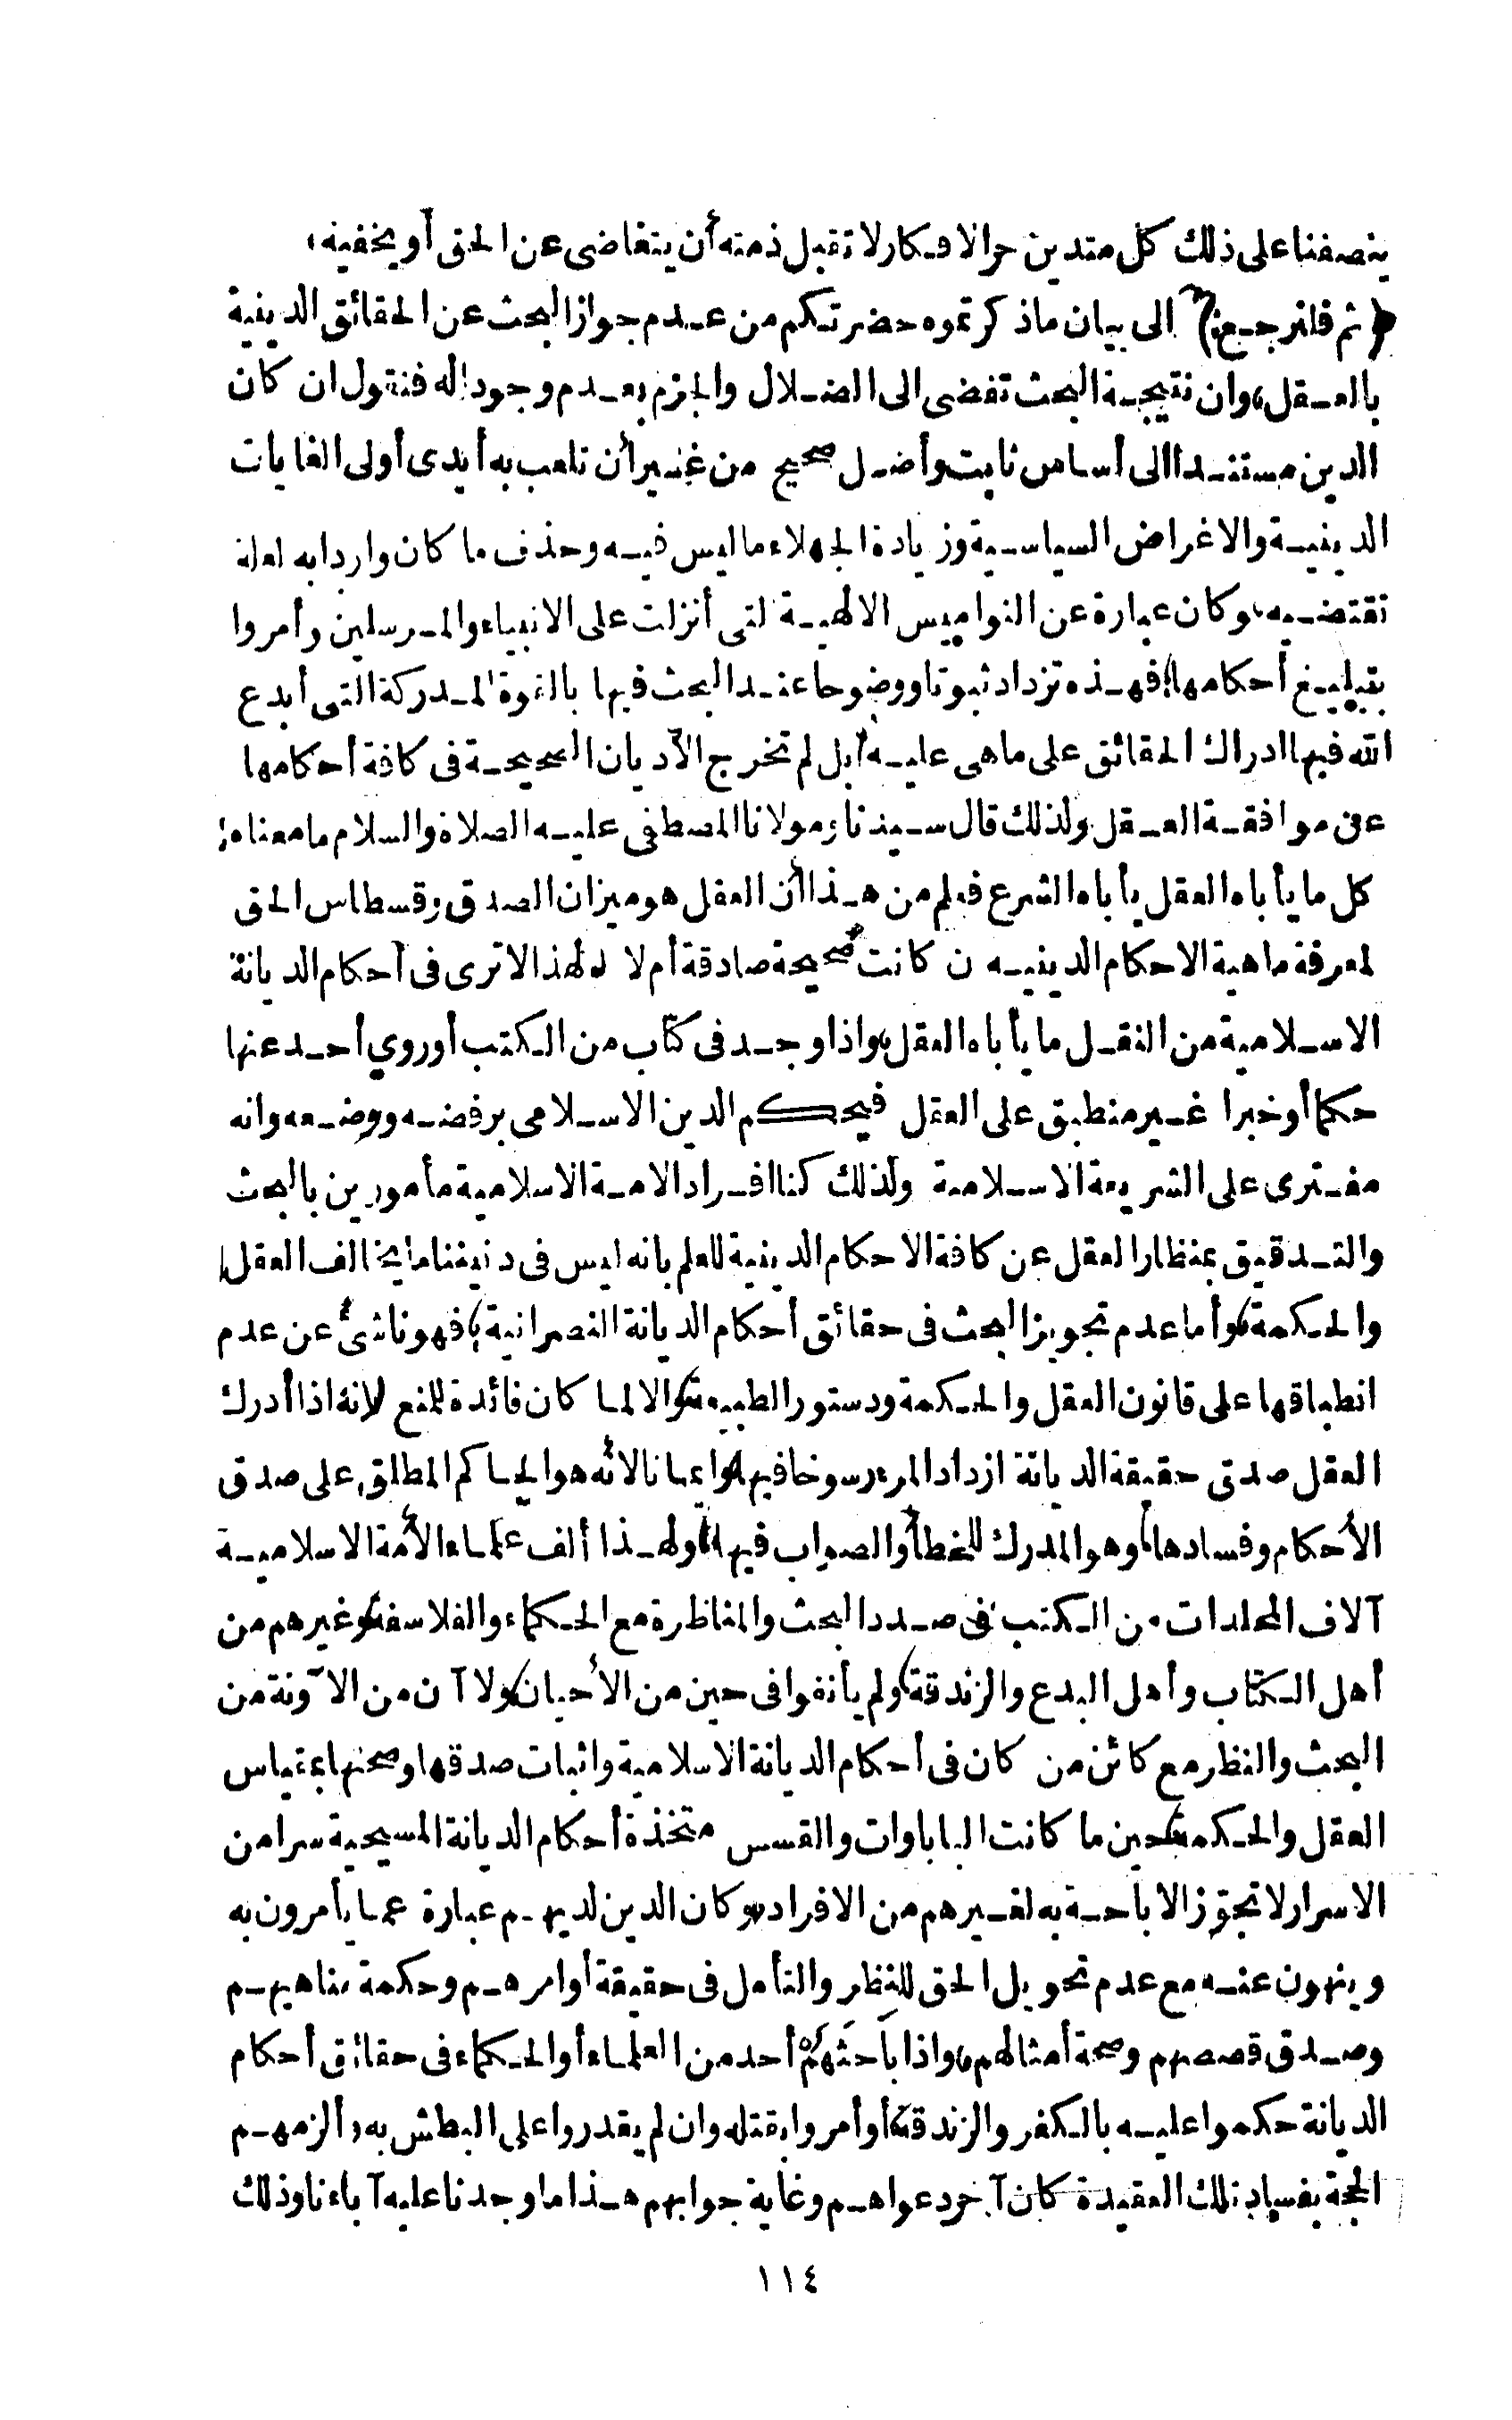 ينصفنا على ذلك كل متدين حر الافكار لا تقبل ذمته أن يتغاضى عن الحق أو يخفيه،
(ثم فلنرجع) الى بيان ماذكرتموه حضرتكم من عدم جواز البحث عن الحقائق الدينية
بالعقل، وان نتيجة البحث تفضى الى الضلال والجزم بعدم وجود اله فنقول ان كان
الدين مستندا الى أساس ثابت وأصل صحيح من غير أن تلعب به أيدى أولى الغايات
الدينية والاغراض السياسية وزيادة الجهلاء ما ليس فيه وحذف ما كان واردا به لعلة
تقتضيه، وكان عبارة عن النواميس الالهية التى أنزلت على الانبياء والمرسلين وأمروا
بتبليغ أحكامها، فهذه تزداد ثبوتا ووضوحا عند البحث فيها بالقوة المدركة التى أبدع
الله فيها ادراك الحقائق على ماهى عليه، بل لم تخرج الأديان الصحيحة فى كافة أحكامها
عن موافقة العقل ولذلك قال سيدنا ومولانا المصطفى عليه الصلاة والسلام ما معناه:
كل ما يأباه العقل يأباه الشرع فعلم من هذا أن العقل هو ميزان الصدق وقسطاس الحق
لمعرفة ماهية الاحكام الدينيه ن كانت صحيحة صادقة أم لا ولهذا لا ترى فى أحكام الديانة
الاسلامية من النقل ما يأباه العقل، واذا وجد فى كتاب من الكتب أوروي أحد عنها
حكما أو خبرا غير منطبق على العقل فيحكم الدين الاسلامى برفضه ووضعه وانه
مفترى على الشريعة الاسلامية ولذلك كنا افراد الامة الاسلامية مأمورين بالبحث
والتدقيق بمنظار العقل عن كافة الاحكام الدينية للعلم بانه ليس فى دنيننا ما يخالف العقل
والحكمة، وأما عدم تجويز البحث فى حقائق أحكام الديانة النصرانية، فهو ناشئ عن عدم
انطباقها على قانون العقل والحكمة ودستور الطبيعة، والا لما كان فائدة للمنع لانه اذا أدرك
العقل صدق حقيقة الديانة ازداد المرء رسوخا فيها، وايمانا لأنه هو الحاكم المطلق على صدق
الأحكام وفسادها، وهو المدرك للخطأ والصواب فيها، ولهذا ألف علماء الأمة الاسلامية
آلاف المجلدات من الكتب فى صدد البحث والمناظرة مع الحكماء والفلاسفة، وغيرهم من
أهل الكتاب وأهل البدع والزندقة، ولم يأنفوا فى حين من الأحيان، ولا آن من الآونة من
البحث والنظر مع كائن من كان فى أحكام الديانة الاسلامية واثبات صدقها وصحتها بمقياس
العقل والحكمة، حين ما كانت الباباوات والقسس متخذة أحكام الديانة المسيحية سرا من
الاسرار لا تجوّز الاباحة به لغيرهم من الافراد، وكان الدين لديهم عبارة عما يأمرون به
وينهون عنه مع عدم تحويل الحق للنظر والتأمل فى حقيقة أوامرهم وحكمة مناهيهم
وصدق قصصهم وصحة أمثالهم، واذا باحثهم أحد من العلماء أو الحكماء فى حقائق أحكام
الديانة حكموا عليه بالكفر والزندقة، أو أمروا بقتله وان لم يقدروا على البطش به، وألزمهم
الحجة بفساد تلك العقيدة كان آخر دعواهم وغاية جوابهم هذا ما وجدنا عليه آباءنا وذلك
١١٤